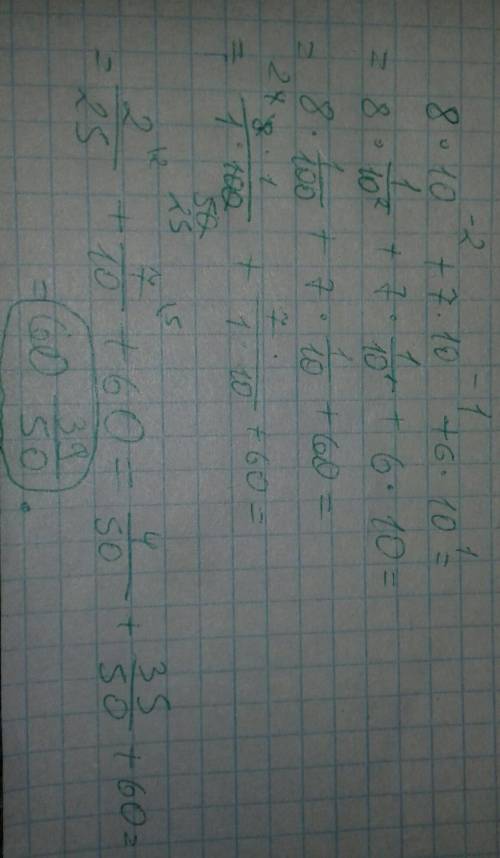 8 · 10⁻² + 7 · 10⁻¹ + 6 · 10¹ =
= 8 · 1/10² + 7 · 1/10¹ + 6 · 10 =
= 8 · 1/100 + 7 · 1/10 + 60 =
= 8 · 1 / 1 · 100 + 7 · / 1 · 10 + 60 =
= 2/25 + 7/10 + 60 = 4/50 + 35/50 + 60 =
= 60 39/50.